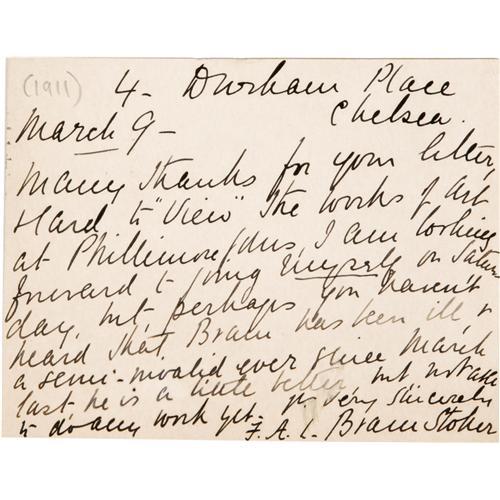 (1911)
4 - Durham Place
Chelsea.
March 9 -
Many thanks for your letter,
Hard to "View" the works of art
at Phillimore Gdns, I am looking
forward to going myself on Satur
day, but, perhaps you haven't
heard that, Bram has been ill &
a semi-invalid ever since March
last, he is a little better, but not able
to do any work yet - yr very sincerely
F. A. L. Bram Stoker